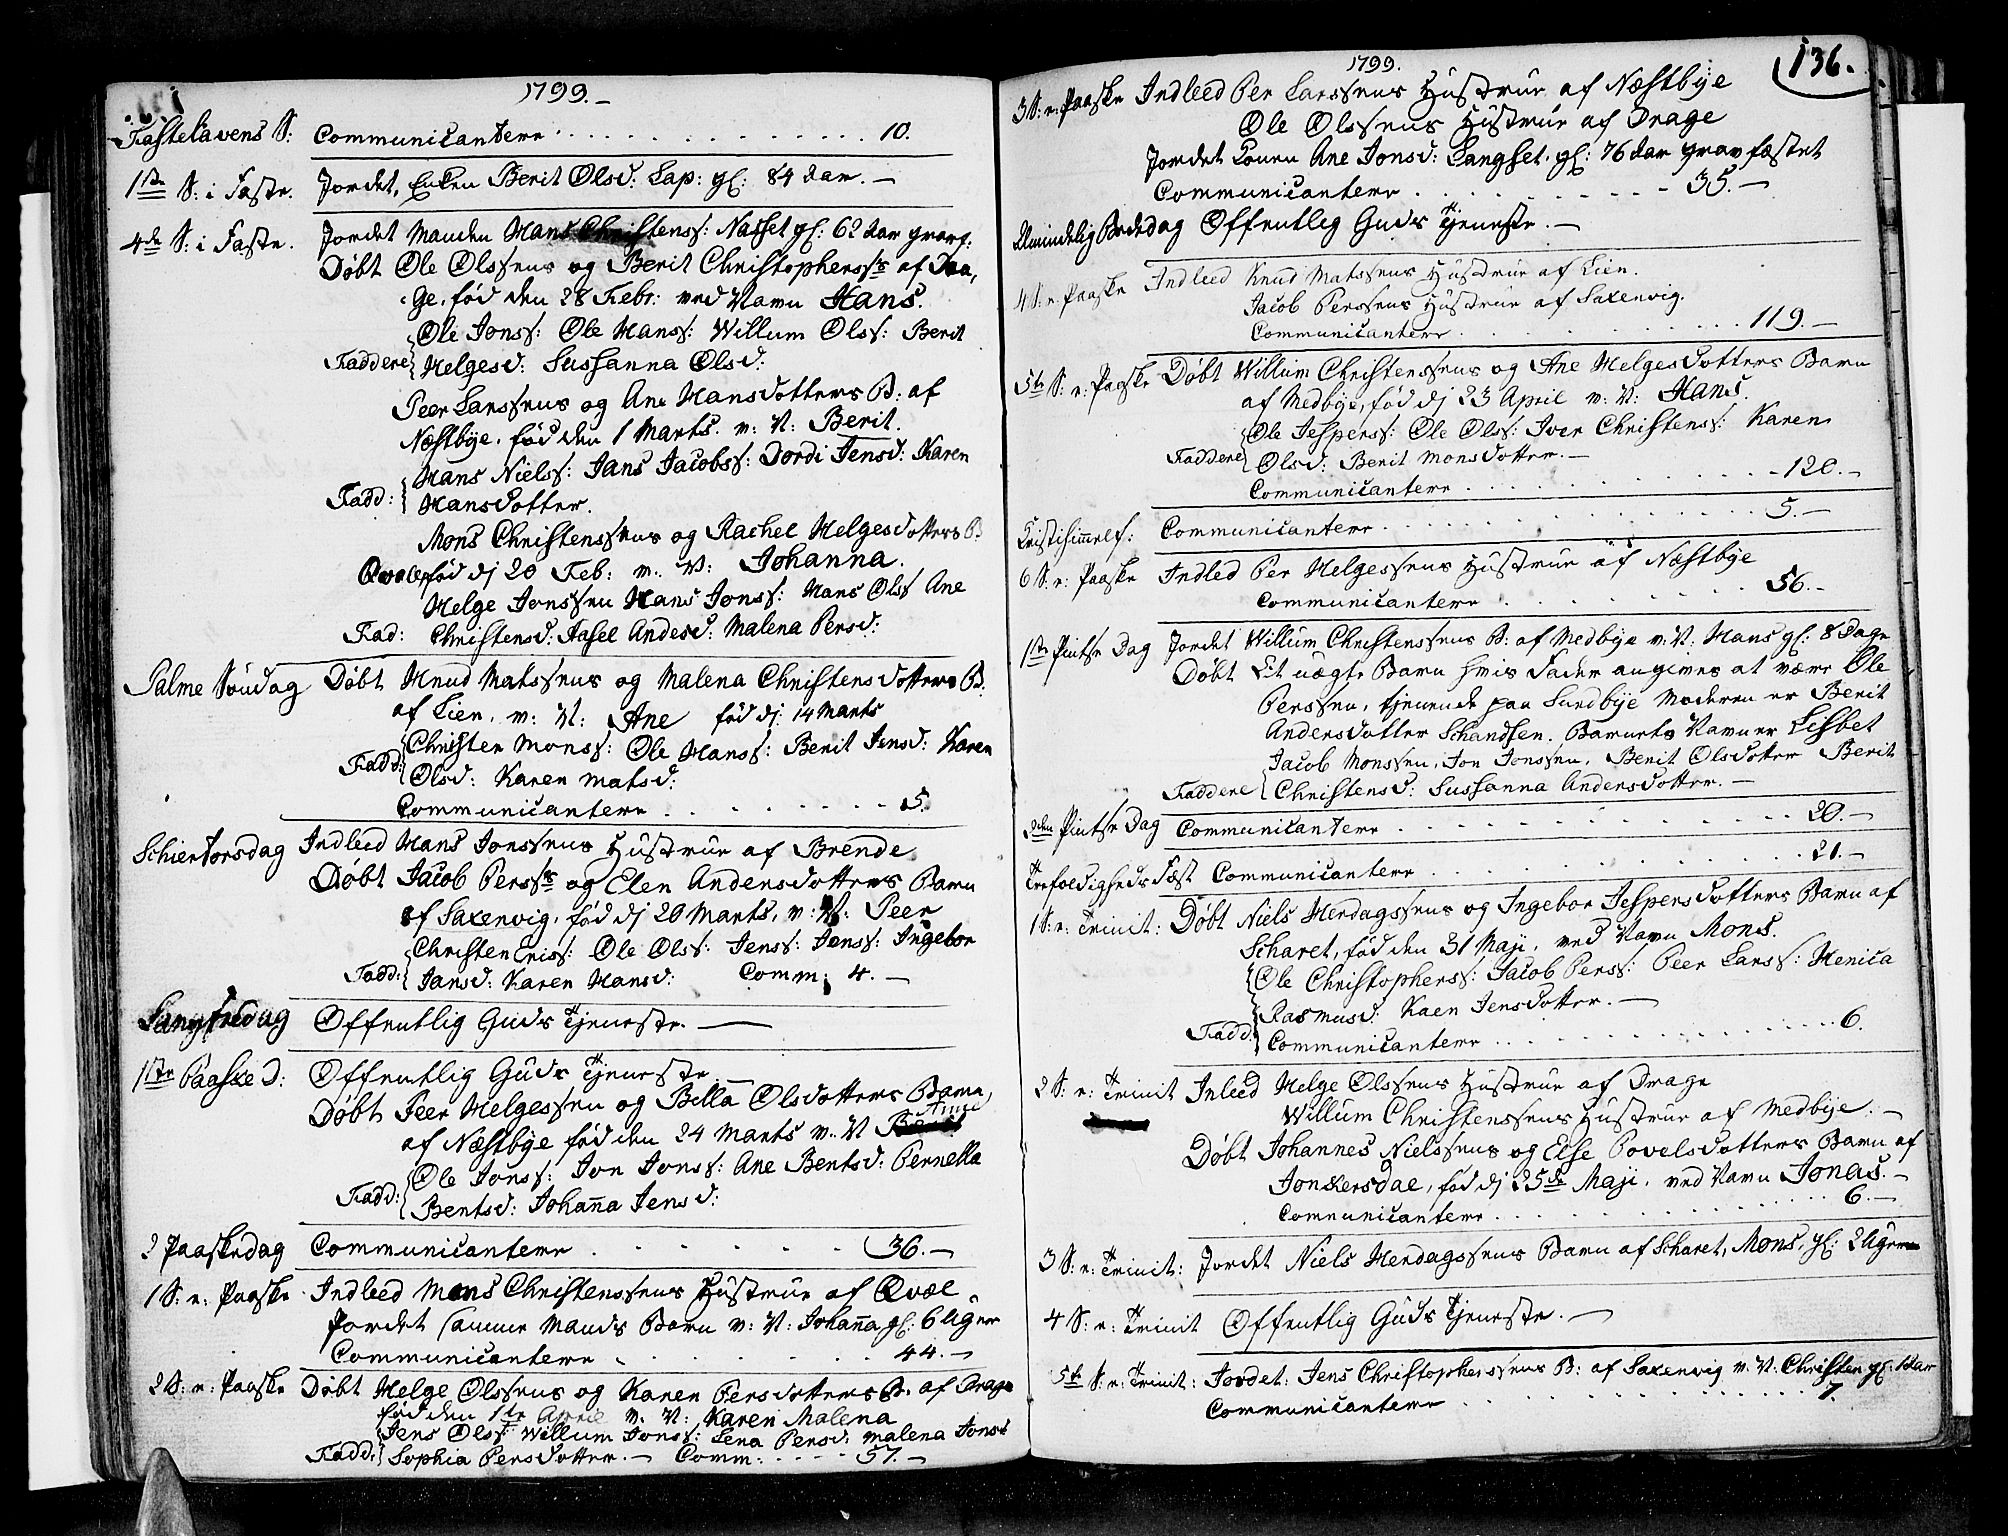 1799.
Fastelavens S: Communicantere 10.
1ste S: i Faste. Jordet, Enken Berit Olsd: Lap: gl: 84 Aar.
4de S: i Faste. Jordet Manden Hans Christenss: Nasset gl: 62 Aar gravf:
Døbt Ole Olssens og Berit Christopherss af Dra,
ge, fød den 28 Febr: ved Navn Hans.
Ole Jonss: Ole Hanss: Willum Olss: Berit
Faddere Helgesd: Sussanna Olsd:
Peer Larssens og Ane Hansdotters B: af
Næstbye, fød den 1 Marts. v: N: Berit.
Hans Nielss: Jans Jacobss: Dordi Jensd: Karen
Fadd: Hansdotter.
Mons Christenssens og Rachel Helgesdotters B
Qvale, fød dj 20 Feb: v: N: Johanna.
Helge Jonssen Hans Jonss: Hans Olss Ane
Fad: Christensd: Aasel Andesd: Malena Persd:
Palme Søndag Døbt Knud Matssens og Malena Christensdotters B.
af Lien, v: N: Ane fød dj: 14 Marts
Christen Monss: Ole Hanss: Berit Jensd: Karen
Fadd: Olsd: Karen Matsd:
Communicantere 5.
Schiertorsdag Indleed Hans Jonssens Hustrue af Brende
Døbt Jacob Perss og Elen Andersdotters Barn
af Saxenvig, fød dj 20 Marts, v: N: Peer
Christen Eriss: Ole Olss: Jenss: Jenss: Ingebor
Fadd: Jansd: Karen Hansd: Comm: 4.
Langfredag Offentlig Guds Tjeneste.
1ste Paaske D: Offentlig Guds Tjeneste
Døbt Peer Helgessen og Bella Olsdotters Barn,
af Næstbye fød den 24 Marts v: N Anne
Ole Jonss: Jon Jonss: Ane Bentsd: Pernella
Fadd: Bentsd: Johanna Jensd:
2 Paaskedag Communicantere 36.
1 S: e: Paaske Indleed Mons Christenssens Hustrue af Qvæl
Jordet samme Mands Barn v: N: Johanna, gl: 6 Uger
Communicantere 44.
2 S: e: Paaske Døbt Helge Olssens og Karen Persdotters B. af Drage
fød den 1ste April v: N: Karen Malena
Jens Olss: Willum Jonss: Lena Persd: Malena Jonsd
Fadd: Sophia Persdotter. Comm: 57.
1799.
136.
3 S: e: Paaske Indleed Per Larssens Hustrue af Næstbye
Ole Olssens Hustrue af Drage
Jordet Konen Ane Jonsd: Langset. gl: 76 Aar gravfæstet
Communicantere 35.
Almindelig Bededag Offentlig Guds Tjeneste.
4 S: e: Paaske Indleed Knud Matssens Hustrue af Lien.
Jacob Perssens Hustrue af Saxenvig.
Communicantere 119.
5te S: e: Paaske Døbt Willum Christenssens og Ane Helgesdotters Barn
af Medbye, fød dj 23 April v: N: Hans.
Ole Jespers: Ole Olss: Iver Christenss: Karen
Faddere Olsd: Berit Monsdotter.
Communicantere 120.
Cristihimelf: Communicantere 5.
6 S: e: Paaske Indled Per Helgessens Hustrue af Næstbye
Communicantere 56.
1ste Pintse Dag Jordet Willum Christenssens B: af Medbye v: N: Hans gl: 8 Dage
Døbt Et uægte Barn hvis Fader angives at være Ole
Perssen, tjenende paa Sundbye Moderen er Berit
Andersdotter Schandsen. Barnets Navn er Lisbet
Jacob Monssen, Jon Jonssen, Berit Olsdotter Berit
Faddere Christensd: Sussanna Andersdotter.
2den Pintse Dag Communicantere 20.
Trefoldigheds Fæst Communicantere 21.
1 S: e: Trinit: Døbt Niels Herdagssens og Ingebor Jespersdotters Barn af
Scharet, fød den 31 Maji, ved Navn Mons.
Ole Christophers: Jacob Perss: Peer Larss: Henica
Rasmusd: Kaen Jensdotter.
Fadd: Communicantere 6.
2 S: e: Trinit Inleed Helge Olssens Hustrue af Drage
Willum Christenssens Hustrue af Medbye.
Døbt Johannes Nielssens og Else Povelsdotters Barn af
Jonkersdal, fød dj 25de Maji, ved Navn Jonas.
Communicantere 6.
3 S: e: Trinit: Jordet Niels Herdagssens Barn af Scharet, Mons, gl: 2 Uger
4 S: e: Trinit Offentlig Guds Tjeneste.
5te S: e: Trinit: Jordet: Jens Christophersens B: af Saxenvig v: N: Christen gl: 1 Aar
Communicantere 7.